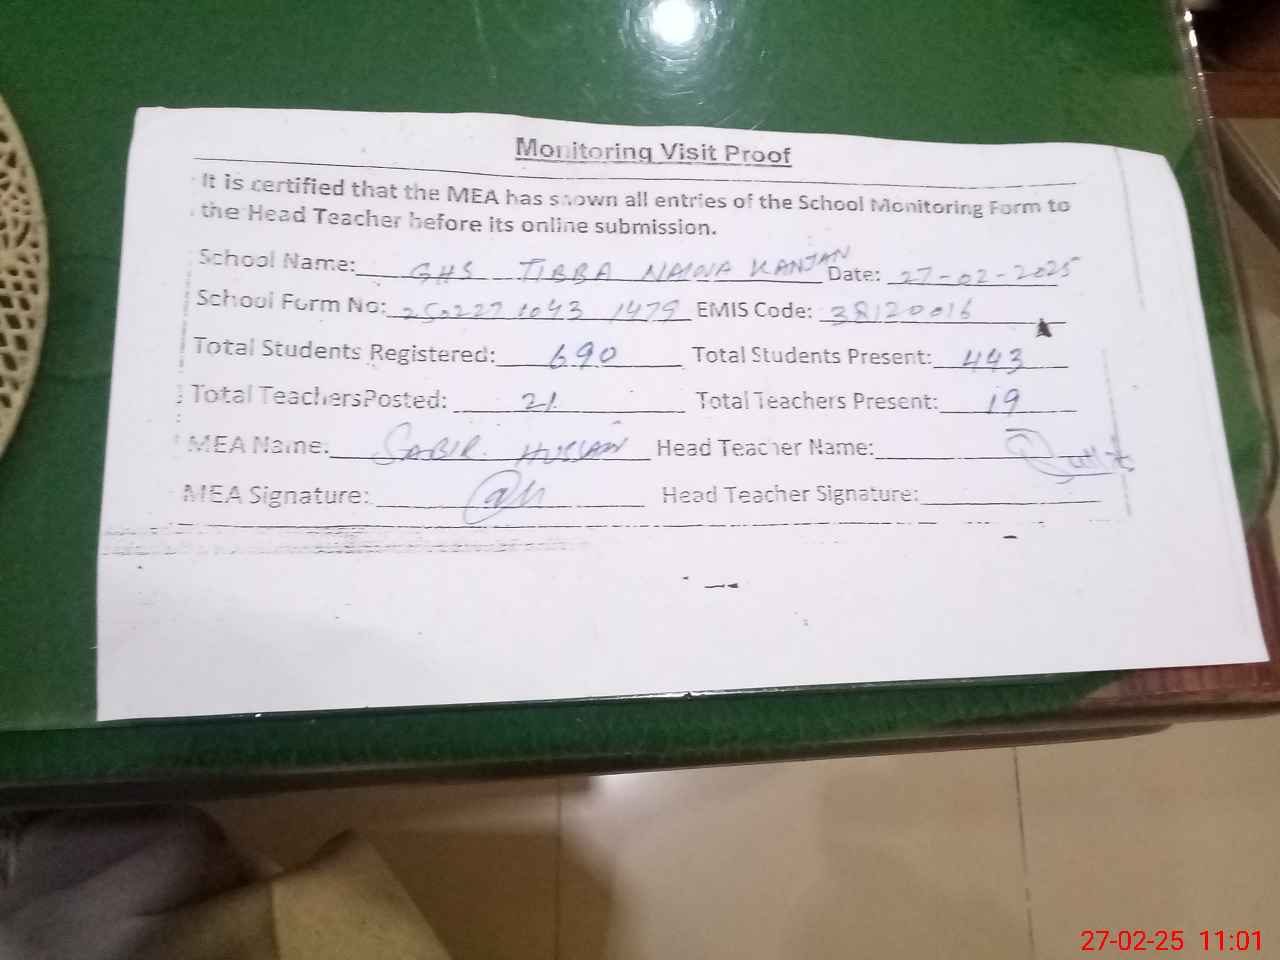 Monitoring Visit Proof
It is certified that the MEA has shown all entries of the School Monitoring Form to
the Head Teacher before its online submission.
School Name: GHS TIBBA NAINA KANJAN Date: 27-02-2025
School Form No: 250227 1043 1479 EMIS Code: 38120016
Total Students Registered: 690 Total Students Present: 443
Total TeachersPosted: 21 Total Teachers Present: 19
MEA Name: SABIR HUSSAIN Head Teacher Name:
MEA Signature: Head Teacher Signature:
27-02-25 11:01